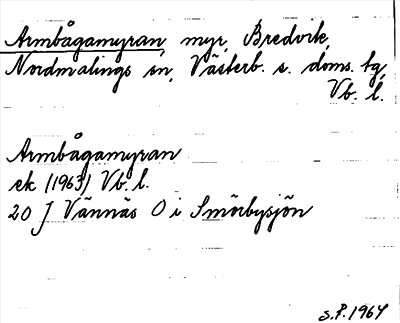 Armbågamyran, myr, Bredvik,
Nordmalings sn, Västerb. s. doms. tg,
Vb. l.
Armbågamyran
ek (1963) Vb. l.
20 J Vännäs O i Smörbysjön
S.P. 1964